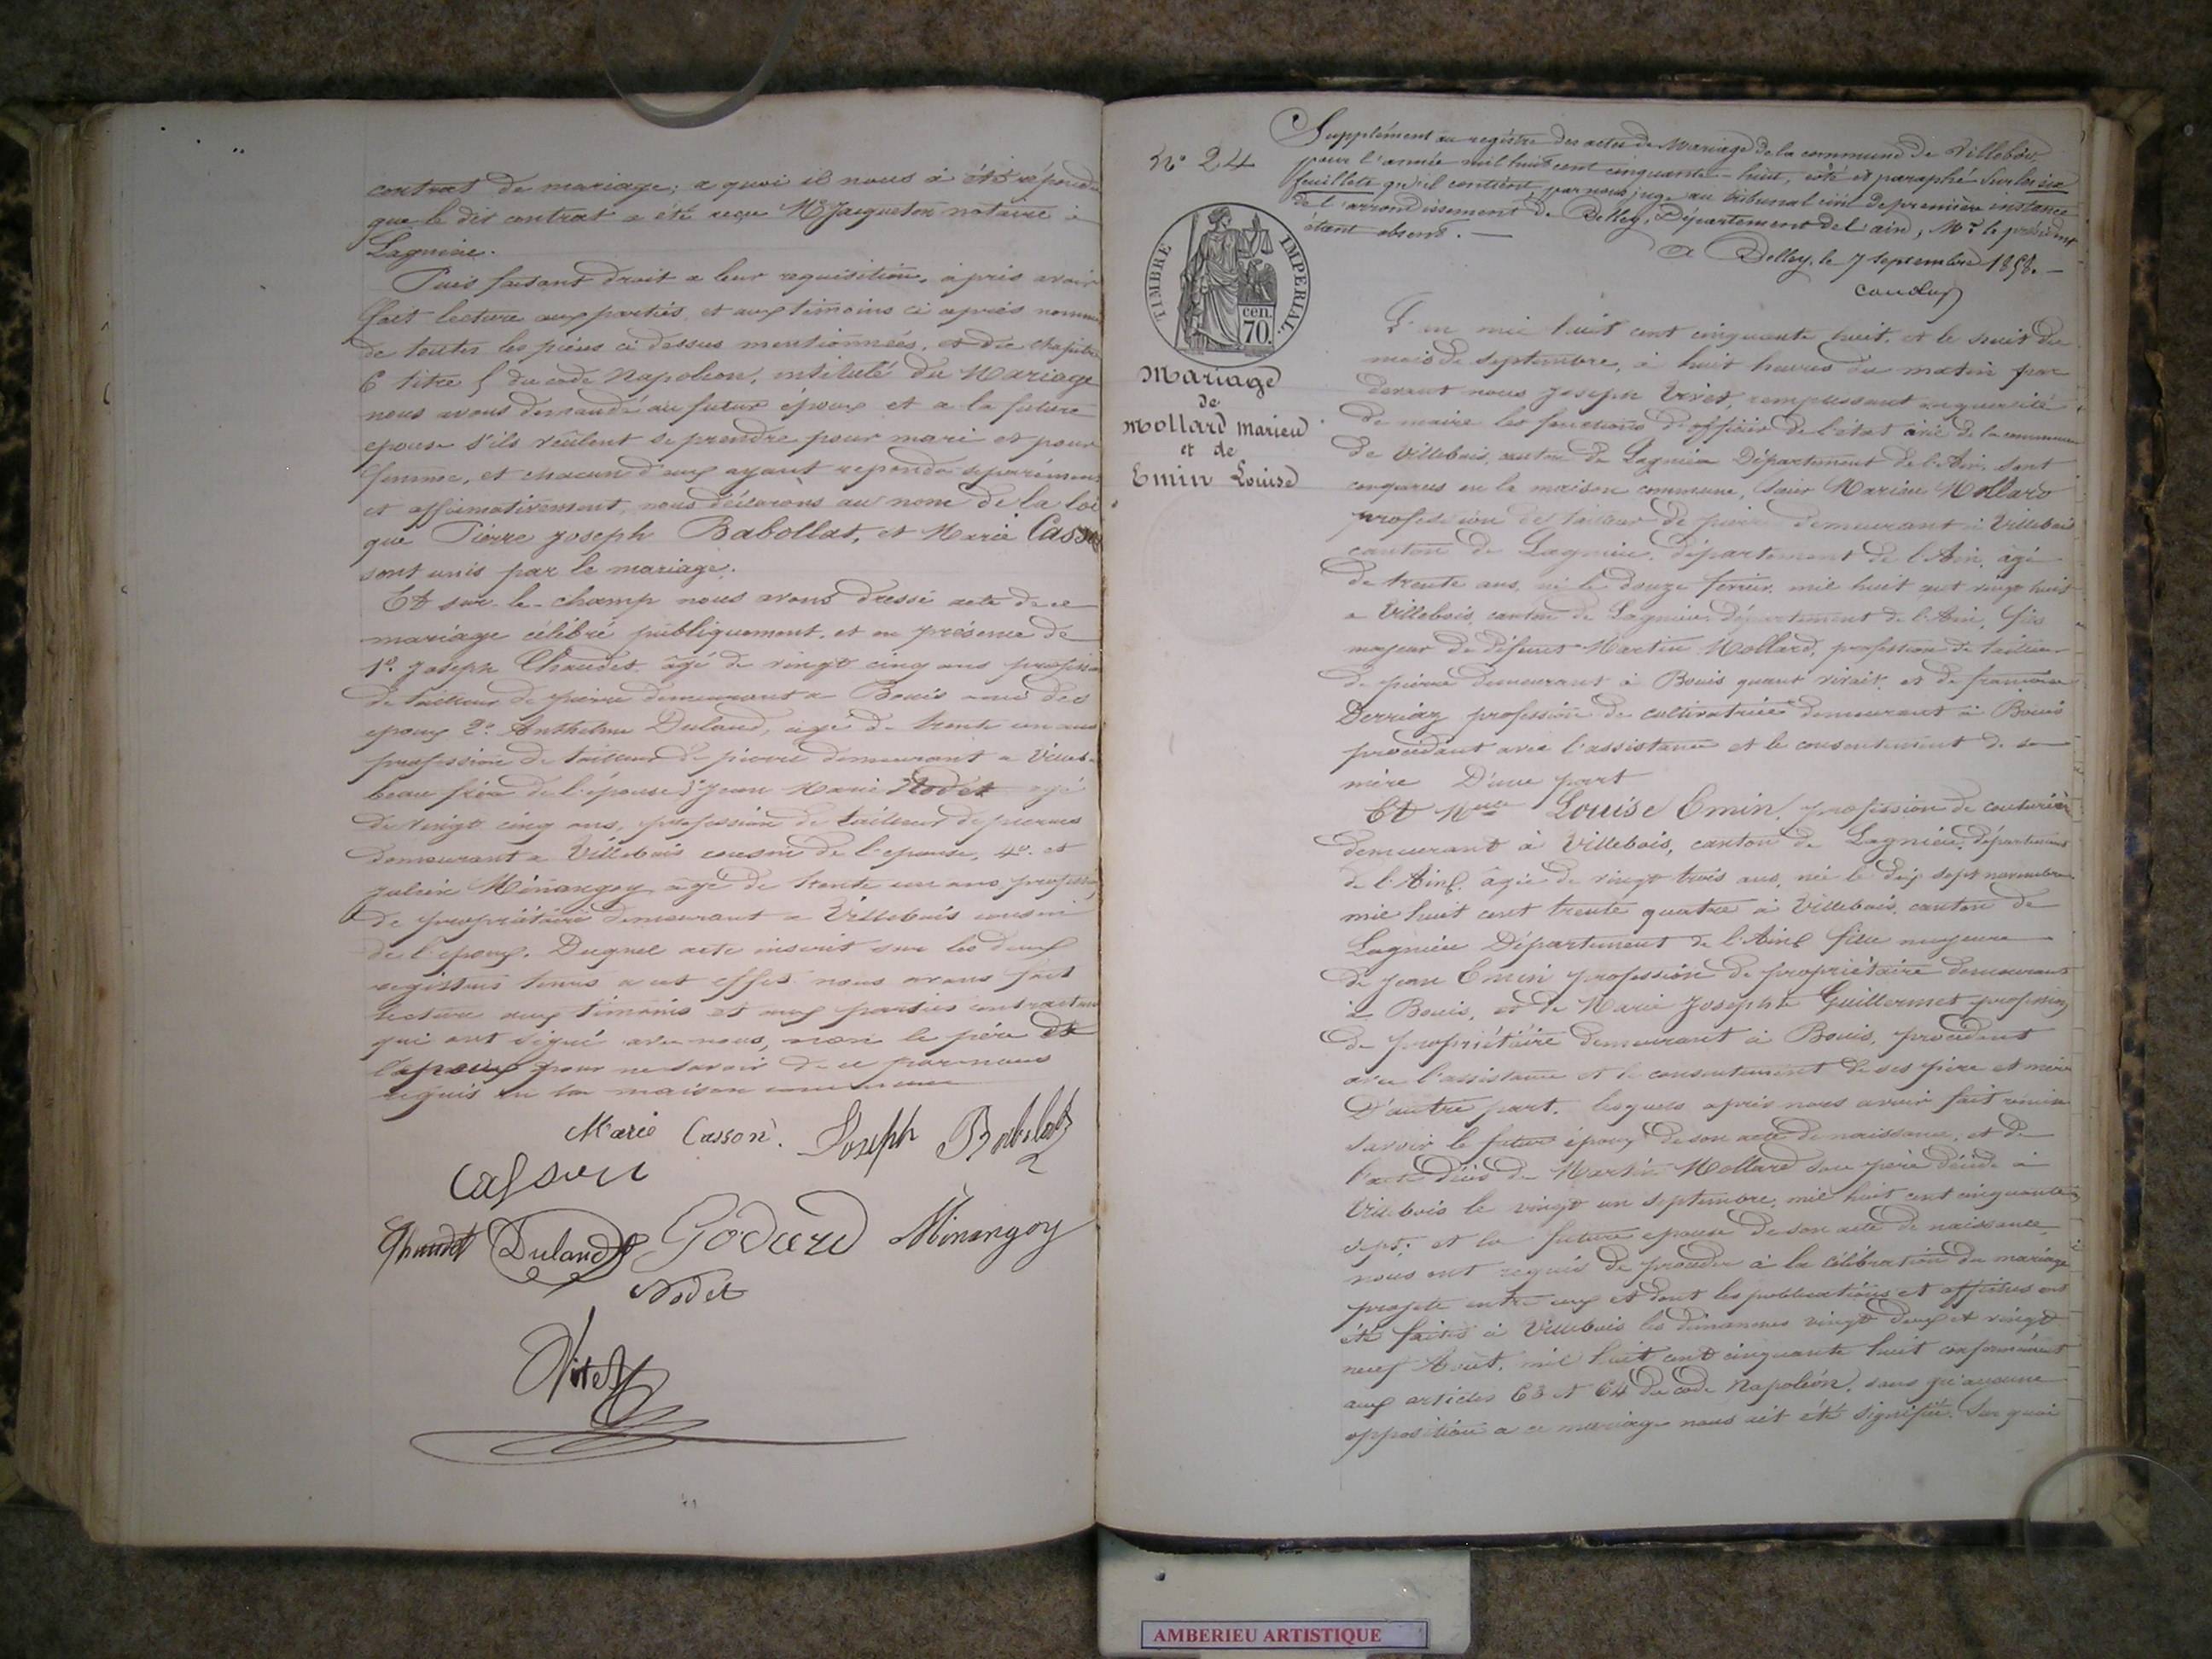 contrat de mariage; a quoi ils nous a été répondu
que le dit contrat a été reçu Me Jacqueton notaire à
Lagnieu.
Puis faisant droit a leur requisition, après avoir
fait lecture aux parties, et aux témoins ci après nommés
de toutes les pièces ci dessus mentionnées, et du chapitre
6 titre 5 du code Napoléon, intitulé du Mariage
nous avons demandé au futur époux et a la future
epouse s'ils veulent se prendre pour mari et pour
femme, et chacun d'eux ayant repondu séparément
et affirmativement, nous déclarons au nom de la loi
que Pierre Joseph Babollat, et Marie Casson
sont unis par le mariage.
Et sur-le-champ nous avons dressé acte de ce
mariage célébré publiquement, et en présence de
1º. Joseph Chaudet âgé de vingt cinq ans profession
de tailleur de pierre demeurant a Bouis ami des
epoux 2º. Anthelme Duland, agé de trente un ans
profession de tailleur de pierre demeurant a Villeb.
beau frère de l'épouse 3º Jean Marie Nodet agé
de vingt cinq ans, profession de tailleur de pierres
demeurant a Villebois cousin de l'epouse, 4º. et
Julien Minangoy âgé de trente un ans profession
de propriétaire demeurant a Villebois cousin
de l'epoux. Duquel acte inscrit sur les deux
registres tenus a cet effet nous avons fait
lecture aux témoins et aux parties contractantes
qui ont signé avec nous, non le père de
l'epoux pour ne savoir de ce par nous
requis en la maison commune
Marie Casson. Joseph Babolat
Casson
Chaudet Duland Godard Minangoy
Nodet
Vivet
Nº 24
Supplément au registre des actes de Mariage de la commune de Villebois,
pour l'année mil huit cent cinquante-huit, coté et paraphé sur les six
feuillets qu'il contient par nous, juge au tribunal civil de première instance
de l'arrondissement de Belley, Département de l'ain, Mr. le président
étant absent. —
A Belley, le 7 septembre 1858. —
TIMBRE IMPERIAL
cen.
70.
Mariage
de
Mollard Marieu
et de
Emin Louise
L'an mil huit cent cinquante huit, et le huit du
mois de septembre, à huit heures du matin par
devant nous Joseph Vivet, remplissant en qualité
de maire les fonctions d'officier de l'état civil de la commune
de Villebois, canton de Lagnieu Département de l'Ain, sont
comparus en la maison commune, Sieur Marieu Mollard
profession de tailleur de pierre demeurant à Villebois
canton de Lagnieu, département de l'Ain, âgé
de trente ans, né le douze fevrier mil huit cent vingt huit
a Villebois, canton de Lagnieu, Département de l'Ain, fils
majeur de défunt Martin Mollard, profession de tailleur
de pierre demeurant à Bouis quand vivait, et de françoise
Derriaz profession de cultivatrice demeurant à Bouis
procédant avec l'assistance et le consentement de sa
mère D'une part
Et Mlle Louise Emin, profession de couturière
demeurant à Villebois, canton de Lagnieu, département
de l'Ain, âgée de vingt trois ans, née le dix sept novembre
mil huit cent trente quatre à Villebois, canton de
Lagnieu Département de l'Ain fille majeure
de Jean Emin profession de propriétaire demeurant
à Bouis, et de Marie Josephte Guillermet profession
de propriétaire demeurant à Bouis, procédant
avec l'assistance et le consentement de ses père et mère
D'autre part. lesquels après nous avoir fait remise
savoir le futur époux de son acte de naissance, et de
l'acte décès de Martin Mollard son père décédé à
Villebois le vingt un septembre, mil huit cent cinquante
sept; et la future epouse de son acte de naissance
nous ont requis de procéder à la célébration du mariage
projeté entre eux et dont les publications et affiches ont
été faites à Villebois les dimanches vingt deux et vingt
neuf Aout, mil huit cent cinquante huit conformément
aux articles 63 et 64 du code Napoléon, sans qu'aucune
opposition a ce mariage nous ait été signifiée. Sur quoi
AMBERIEU ARTISTIQUE